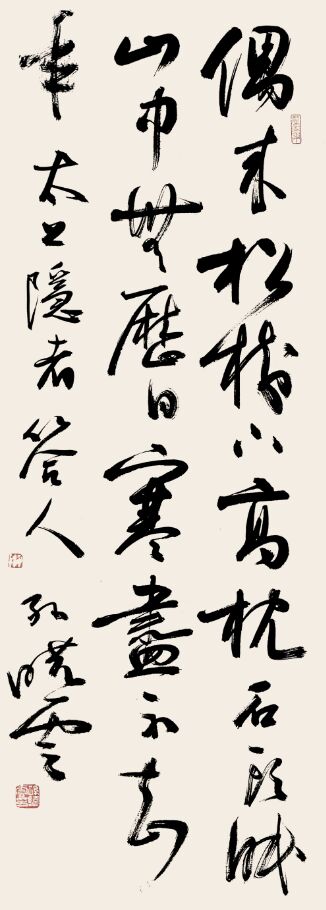 偶來松樹下高枕石頭眠
山中無歷日寒盡不知
年 太上隱者答人 孔曉雲